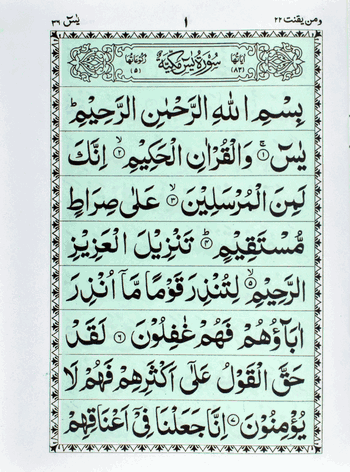 ومن يقنت ٢٢ ١ يٰسٓ ٣٦
اٰیَاتُهَا (٨٣) سُوْرَةُ يٰسٓ مَكِّيَّةٌ رُكُوْعَاتُهَا (٥)
بِسْمِ اللّٰهِ الرَّحْمٰنِ الرَّحِيْمِ
يٰسٓ ۚ﴿١﴾ وَالْقُرْاٰنِ الْحَكِيْمِ ۙ﴿٢﴾ اِنَّكَ
لَمِنَ الْمُرْسَلِيْنَ ۙ﴿٣﴾ عَلٰى صِرَاطٍ
مُّسْتَقِيْمٍ ؕ﴿٤﴾ تَنْزِيْلَ الْعَزِيْزِ
الرَّحِيْمِ ۙ﴿٥﴾ لِتُنْذِرَ قَوْمًا مَّاۤ اُنْذِرَ
اٰبَآؤُهُمْ فَهُمْ غٰفِلُوْنَ ﴿٦﴾ لَقَدْ
حَقَّ الْقَوْلُ عَلٰٓى اَكْثَرِهِمْ فَهُمْ لَا
يُؤْمِنُوْنَ ﴿٧﴾ اِنَّا جَعَلْنَا فِيْٓ اَعْنَاقِهِمْ